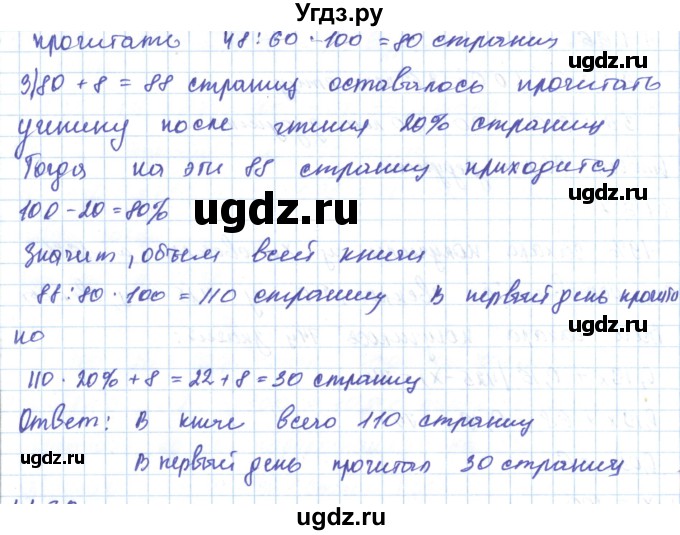 Угдз.ру
прочитать 48 : 60 · 100 = 80 страниц
3) 80 + 8 = 88 страниц оставалось прочитать
ученику после чтения 20% страниц
Тогда на эти 88 страниц приходится
100 - 20 = 80%
ugdz.ru ugdz.ru
Значит, объем всей книги
88 : 80 · 100 = 110 страниц В первый день прочита
но
110 · 20% + 8 = 22 + 8 = 30 страниц
Ответ: В книге всего 110 страниц
ugdz.ru В первый день прочитал 30 страниц
ugdz.ru